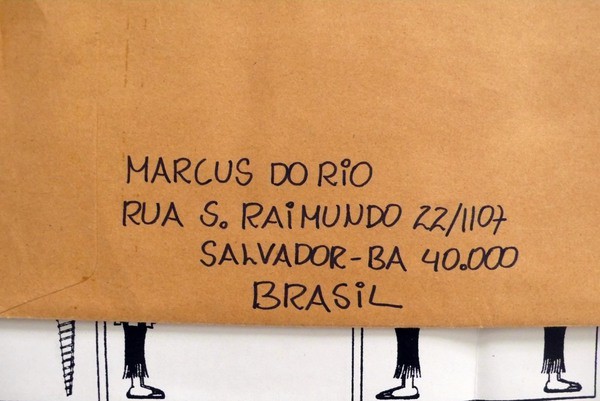 MARCUS DO RiO
RUA S. RAiMUNDO 22/1107
SALVADOR-BA 40.000
BRASiL